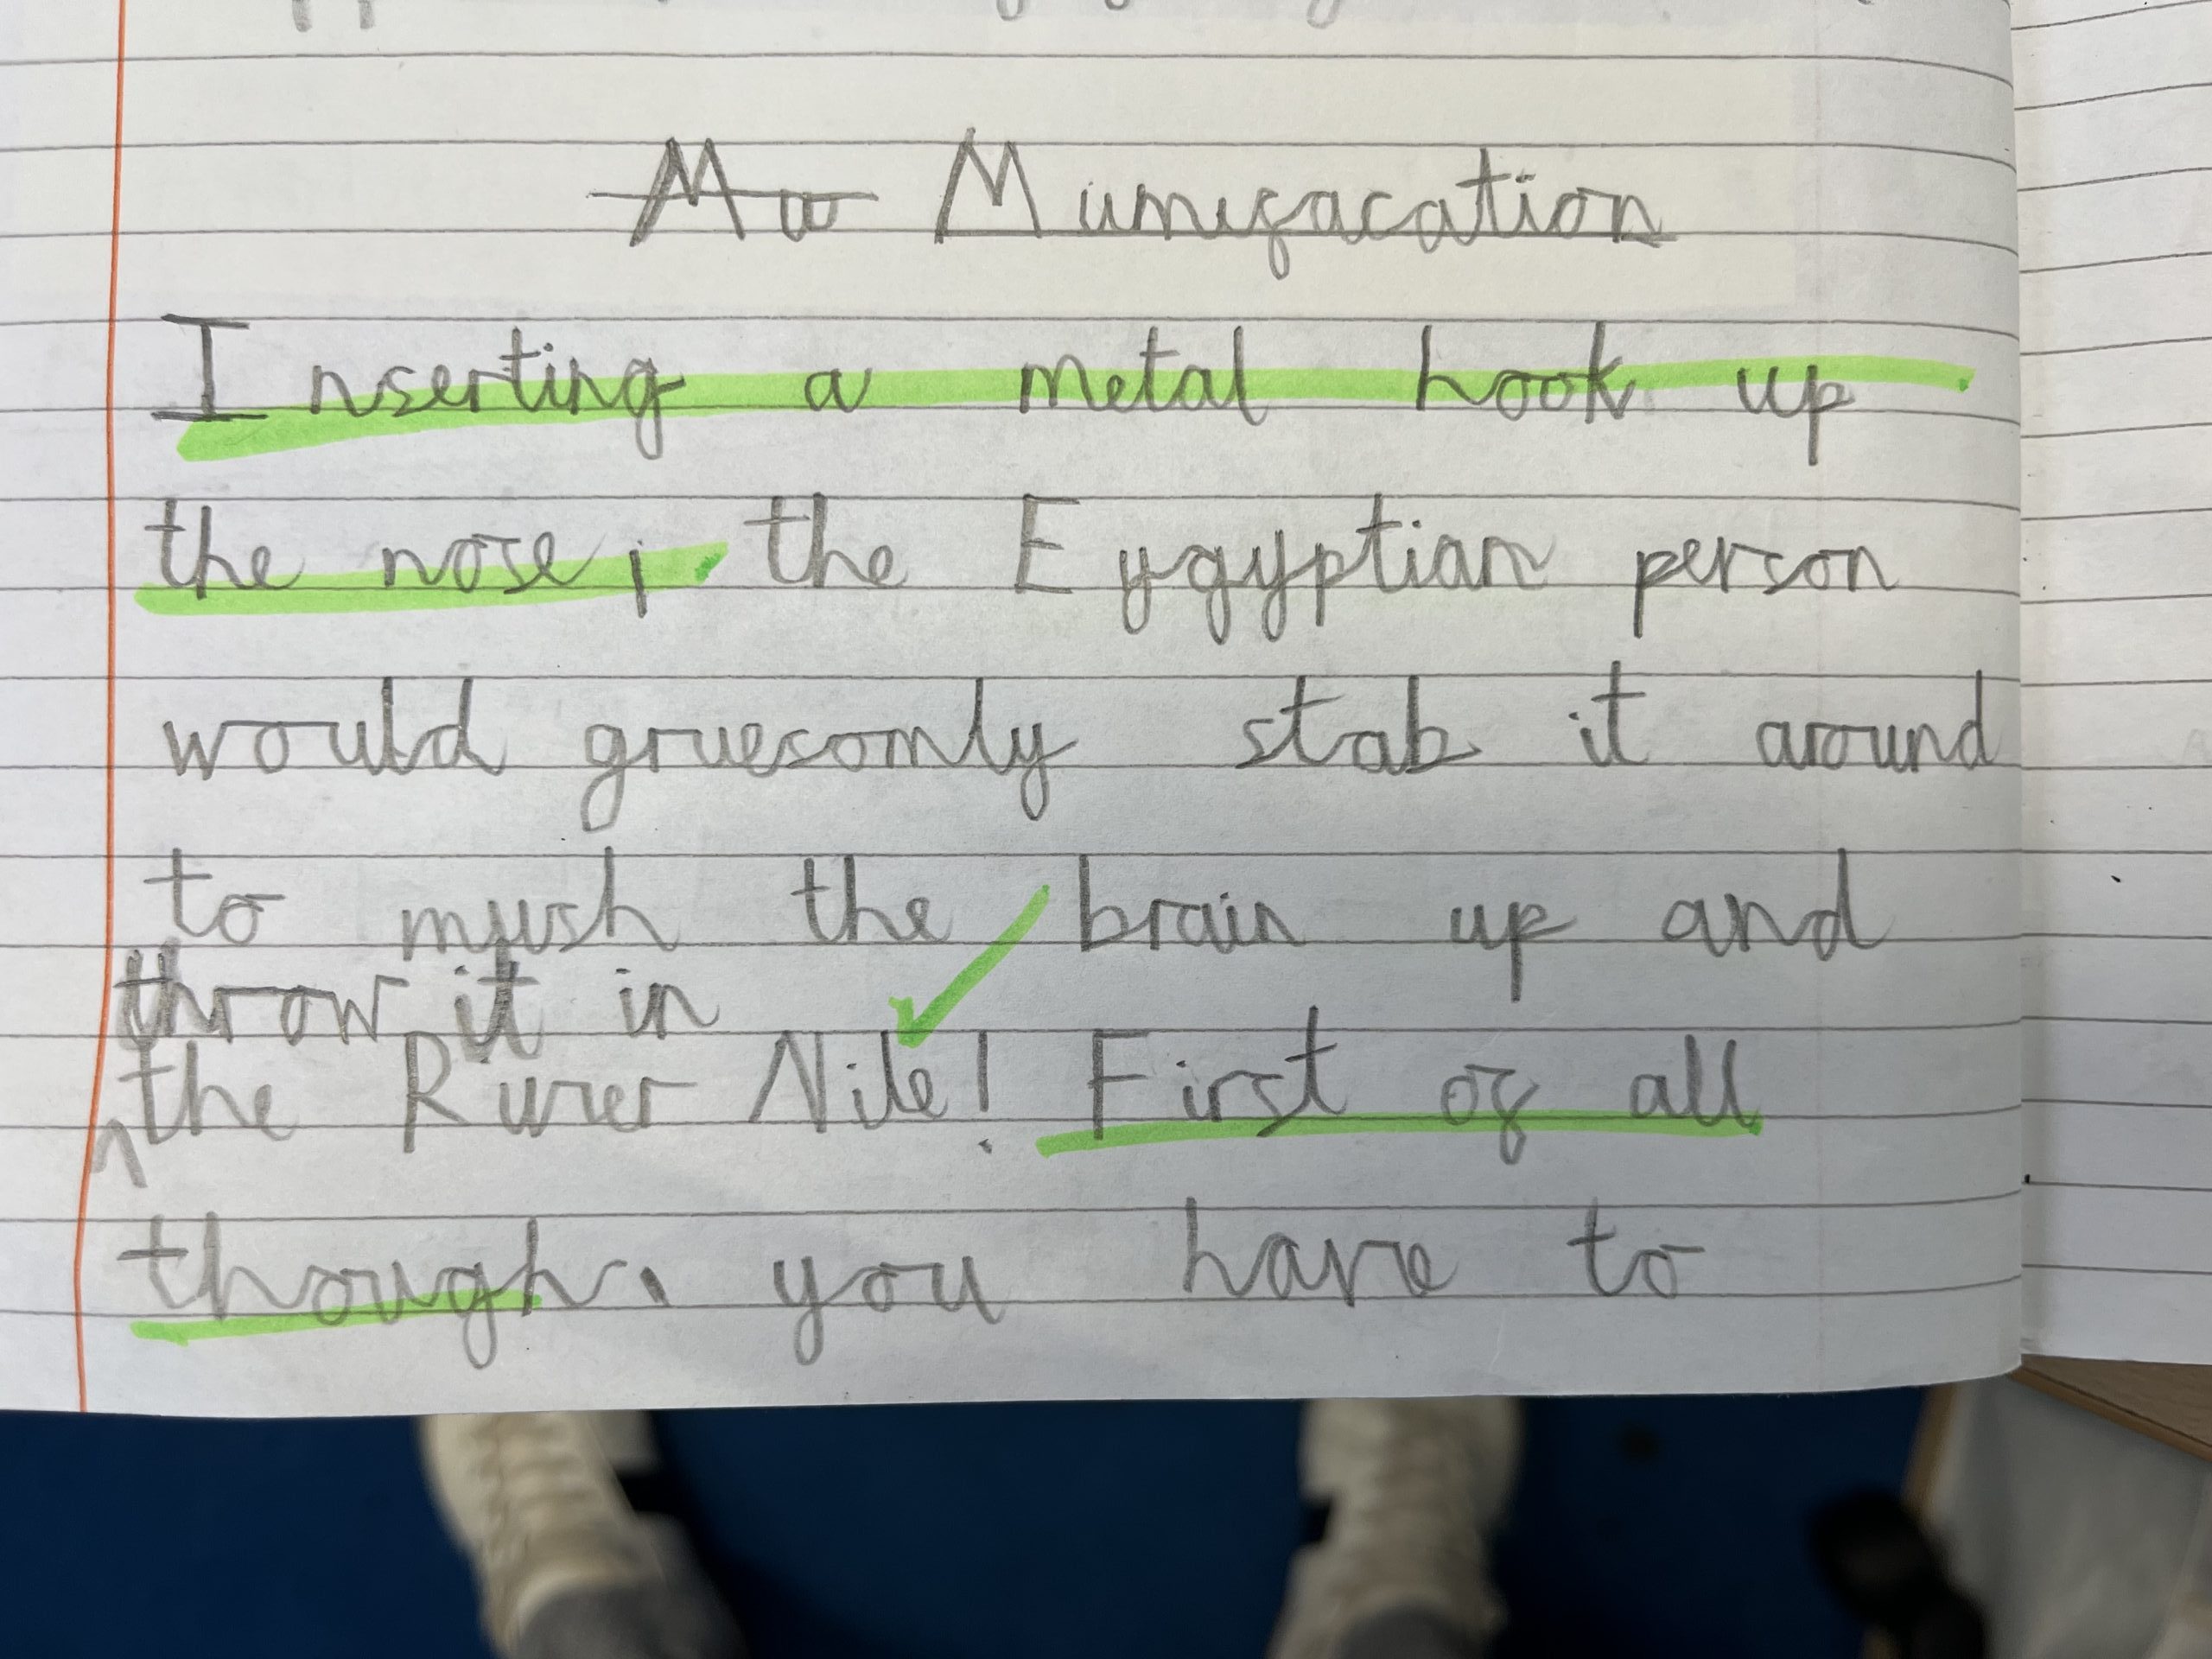 Mu Mumifacation
Inserting a metal hook up
the nose, the Eygyptian person
would gruesomly stab it around
to mush the brain up and
throw it in
the River Nile! First of all
though, you have to